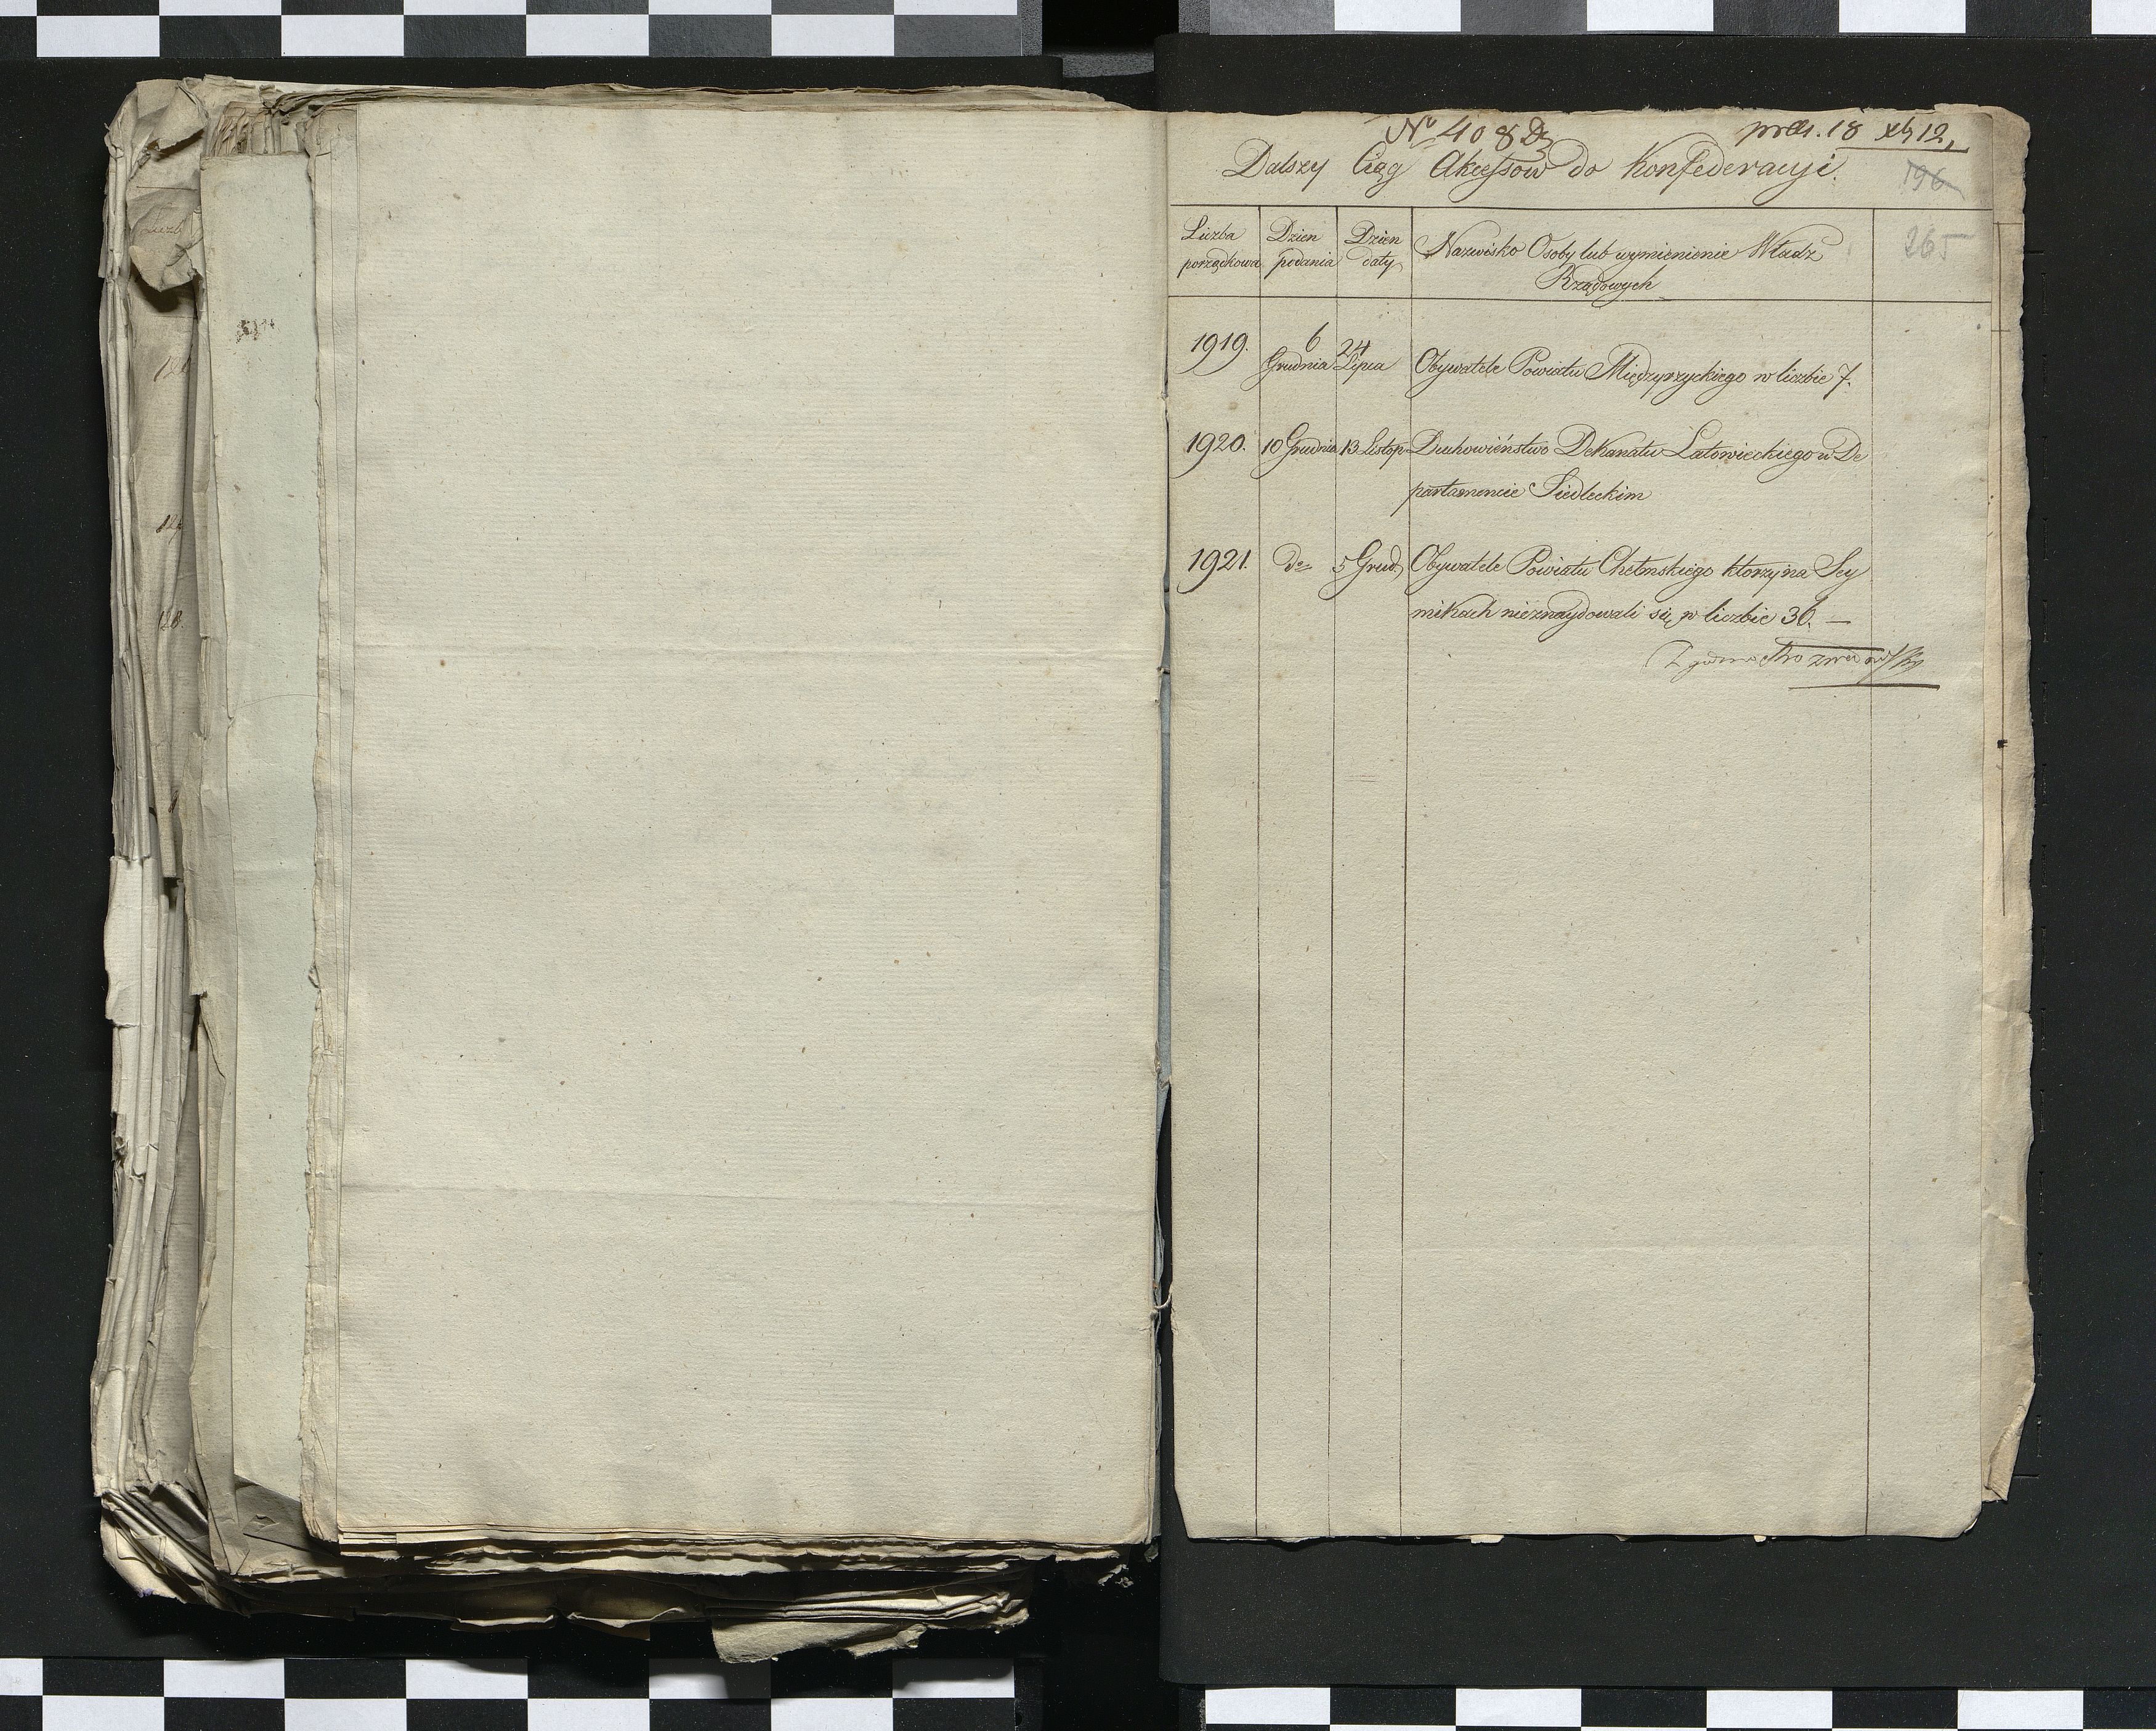 No 408 Dz
pres. 18 xb 12
Dalszy Ciąg Akcessow do Konfederacyi.
196
265
Liczba porządkowa
Dzien podania
Dzien daty
Nazwisko Osoby lub wymienienie Władz
Rządowych
1919. 6 Grudnia 24 Lipca Obywatele Powiatu Międzyrzyckiego w liczbie 7.
1920. 10 Grudnia 13 Listop Duchowieństwo Dekanatu Latowieckiego w De
partamencie Siedleckim
1921. do 5 Grud. Obywatele Powiatu Chełmskiego ktorzy na Sey
mikach nieznaydowali się w liczbie 36. —